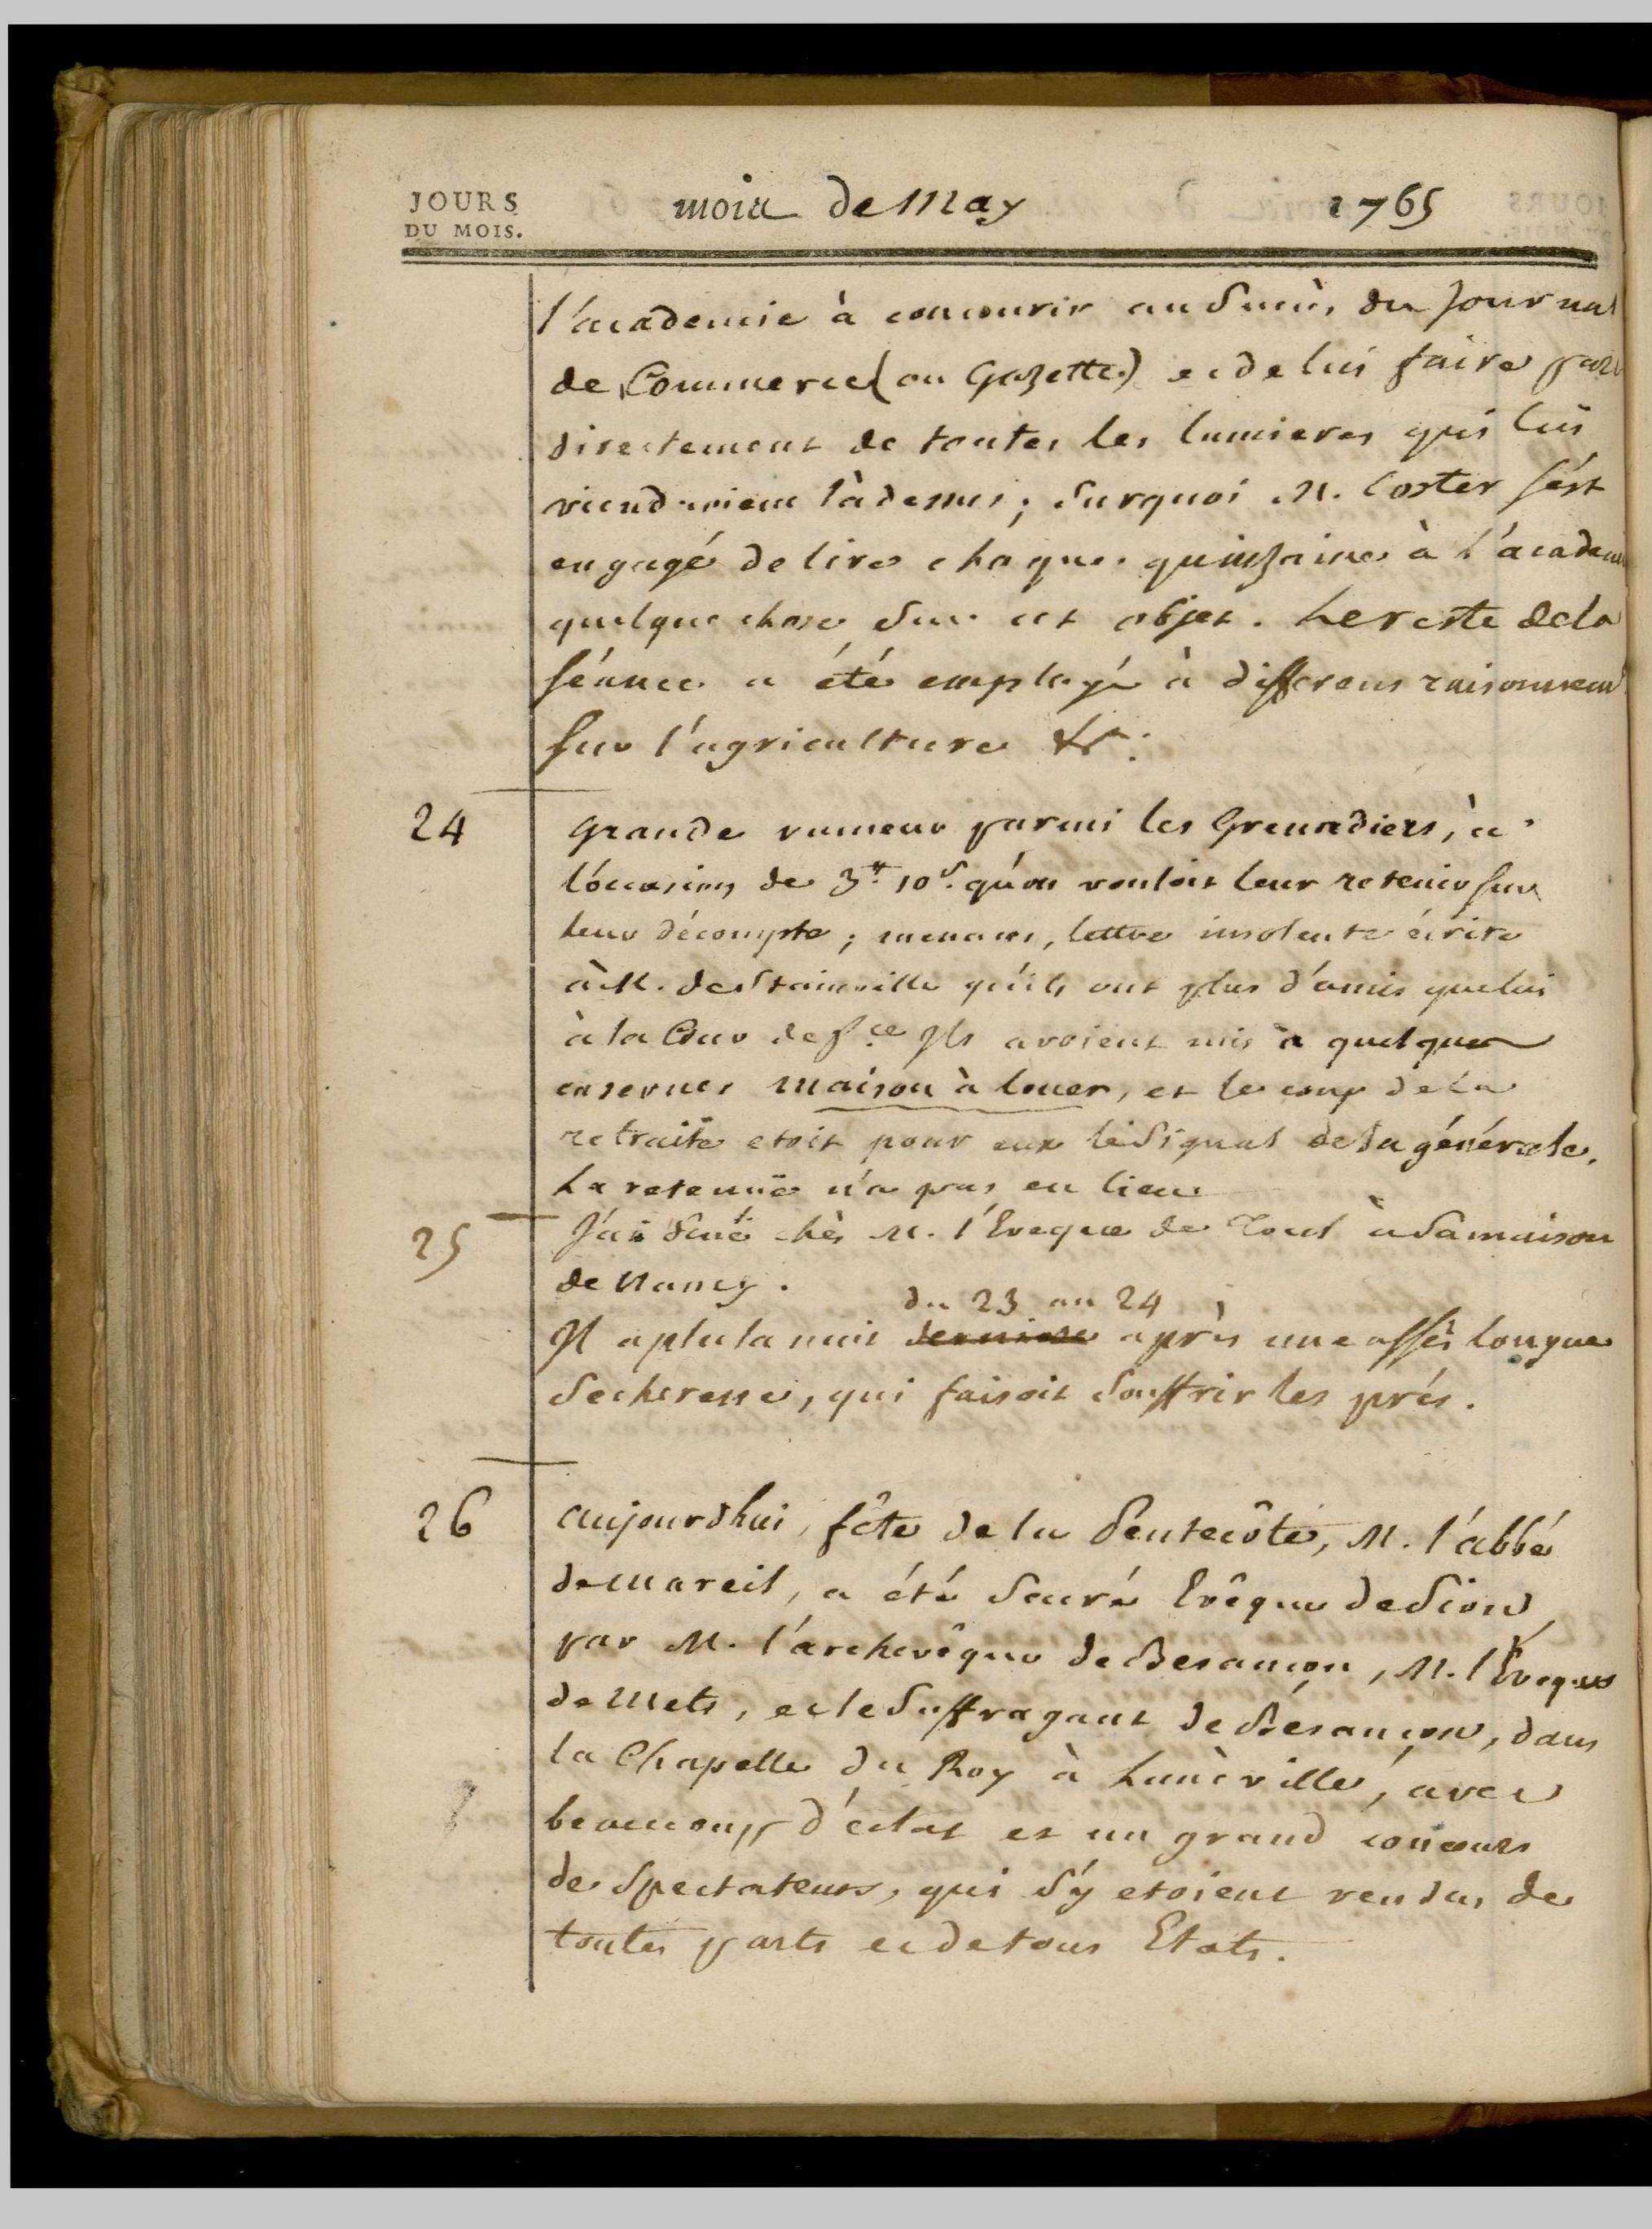 JOURS
DU MOIS.
mois de May 1765
l'academie à concourir au Succès du Journal
de Commerce (ou Gazette) et de lui faire part
directement de toutes les lumieres qui lui
viendroient là dessus ; Surquoi M. Coster s'est
engagé de lire chaque quinzaine à l'academie
quelque chose Sur cet objet. Le reste dela
séance a été employé à differens raisonnemens
sur l'agriculture &c.
24
grande rumeur parmi les Grenadiers, à
l'occasion de 3ᵗᵗ 10ˢ. qu'on vouloit leur retenir sur
leur décompte ; menaces, lettre insolente écrite
à M. de Stainville qu'ils ont plus d'amis que lui
à la Cour de f.ce Ils avoient mis à quelques
casernes maison à louer, et le coup de la
retraite etoit pour eux le Signal de la générale.
La retenuë n'a pas eu lieu
25
J'ai diné chès M. l'Eveque de Toul à Sa maison
de Nancy.
du 23 au 24
Il a plu la nuit derniere après une assés longue
Secheresse, qui faisoit Souffrir les prés.
26
aujourdhui, fête de la Pentecôte, M. l'abbé
de Mareil, a été Sacré Evêque de Sion,
par M. l'archevêque de Besançon, M. l'Eveque
de Mets, et le Suffragant de Besançon, dans
la Chapelle du Roy à Lunéville, avec
beaucoup d'éclat et un grand concours
de Spectateurs, qui S'y etoient rendus de
toutes parts et de tous Etats.